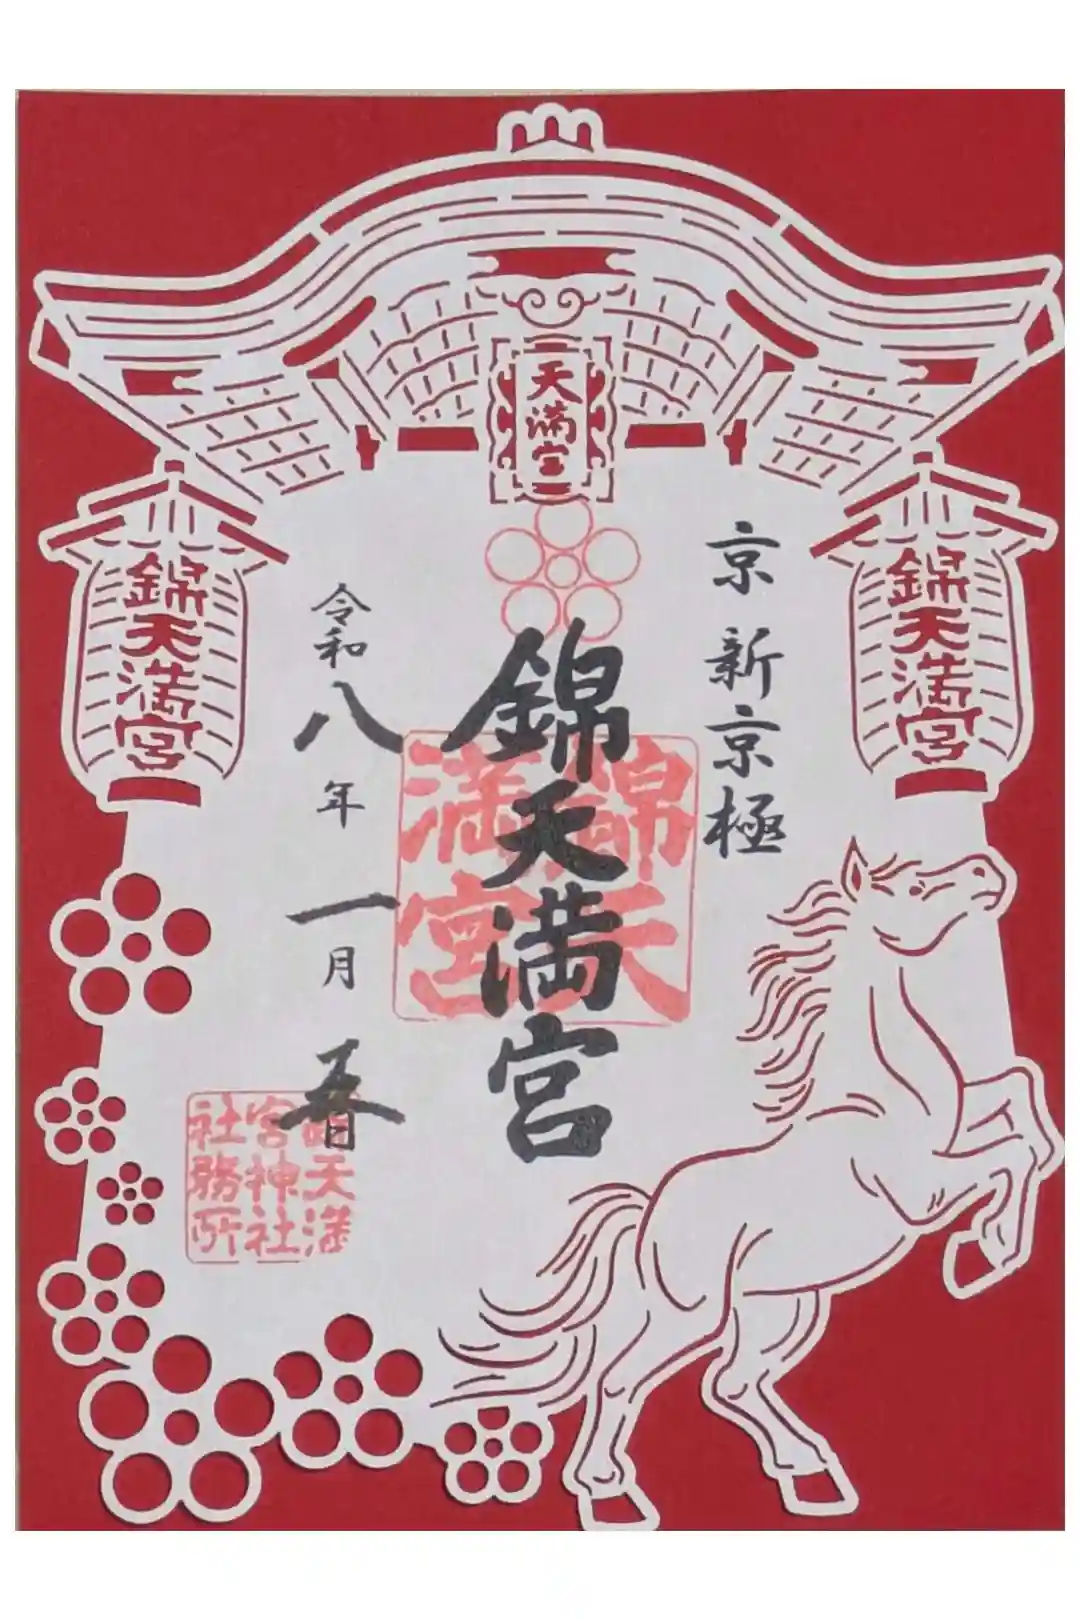 天満宮
錦天満宮
京 新京極
錦天満宮
錦天
満宮
令和八年 一月 春
錦天満
宮神社
社務所
錦天満宮